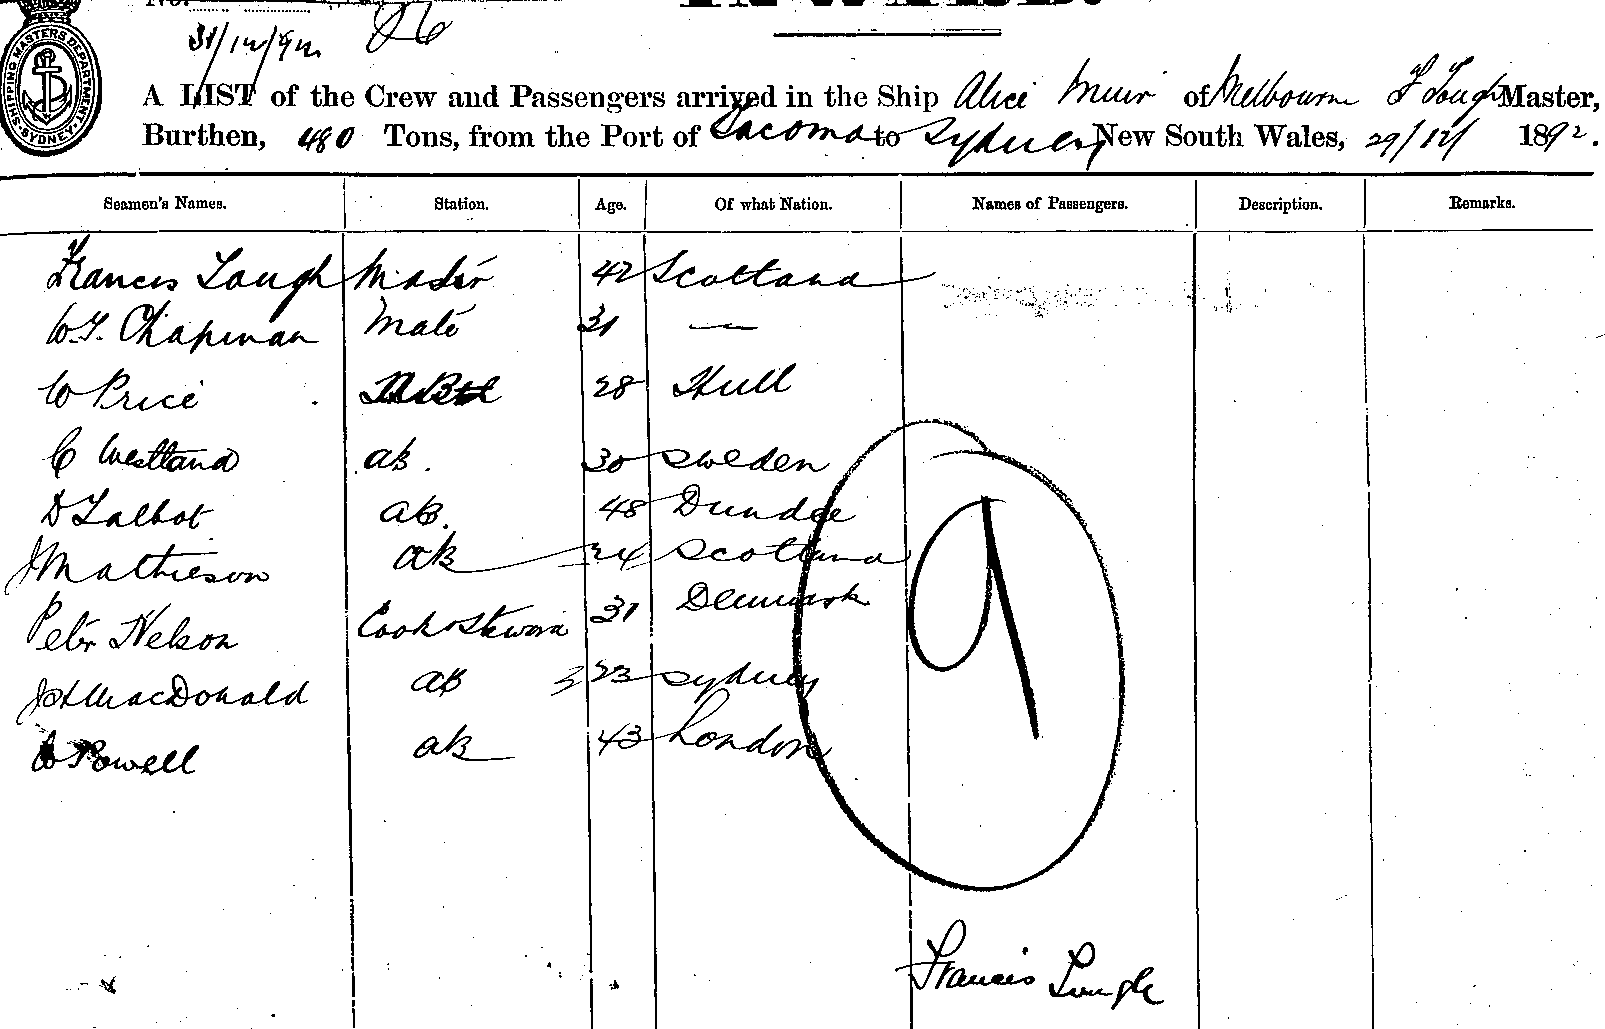 No.
31/12/92 86
SHIPPING MASTERS DEPARTMENT SYDNEY
A LIST of the Crew and Passengers arrived in the Ship Alice Muir of Melbourne F Lough Master,
Burthen, 480 Tons, from the Port of Tacoma to Sydney New South Wales, 29/12/ 1892.
Seamen's Names. Station. Age. Of what Nation. Names of Passengers. Description. Remarks.
Francis Lough Master 42 Scotland
W.T. Chapman Mate 31 —
W Price 28 Hull
C Westland ab. 30 Sweden
D Talbot ab. 48 Dundee
J Mathieson ab 24 Scotland
Peter Nelson Cook & Steward 31 Denmark
MacDonald ab 23 Sydney
Powell ab 43 London
9
Francis Lough